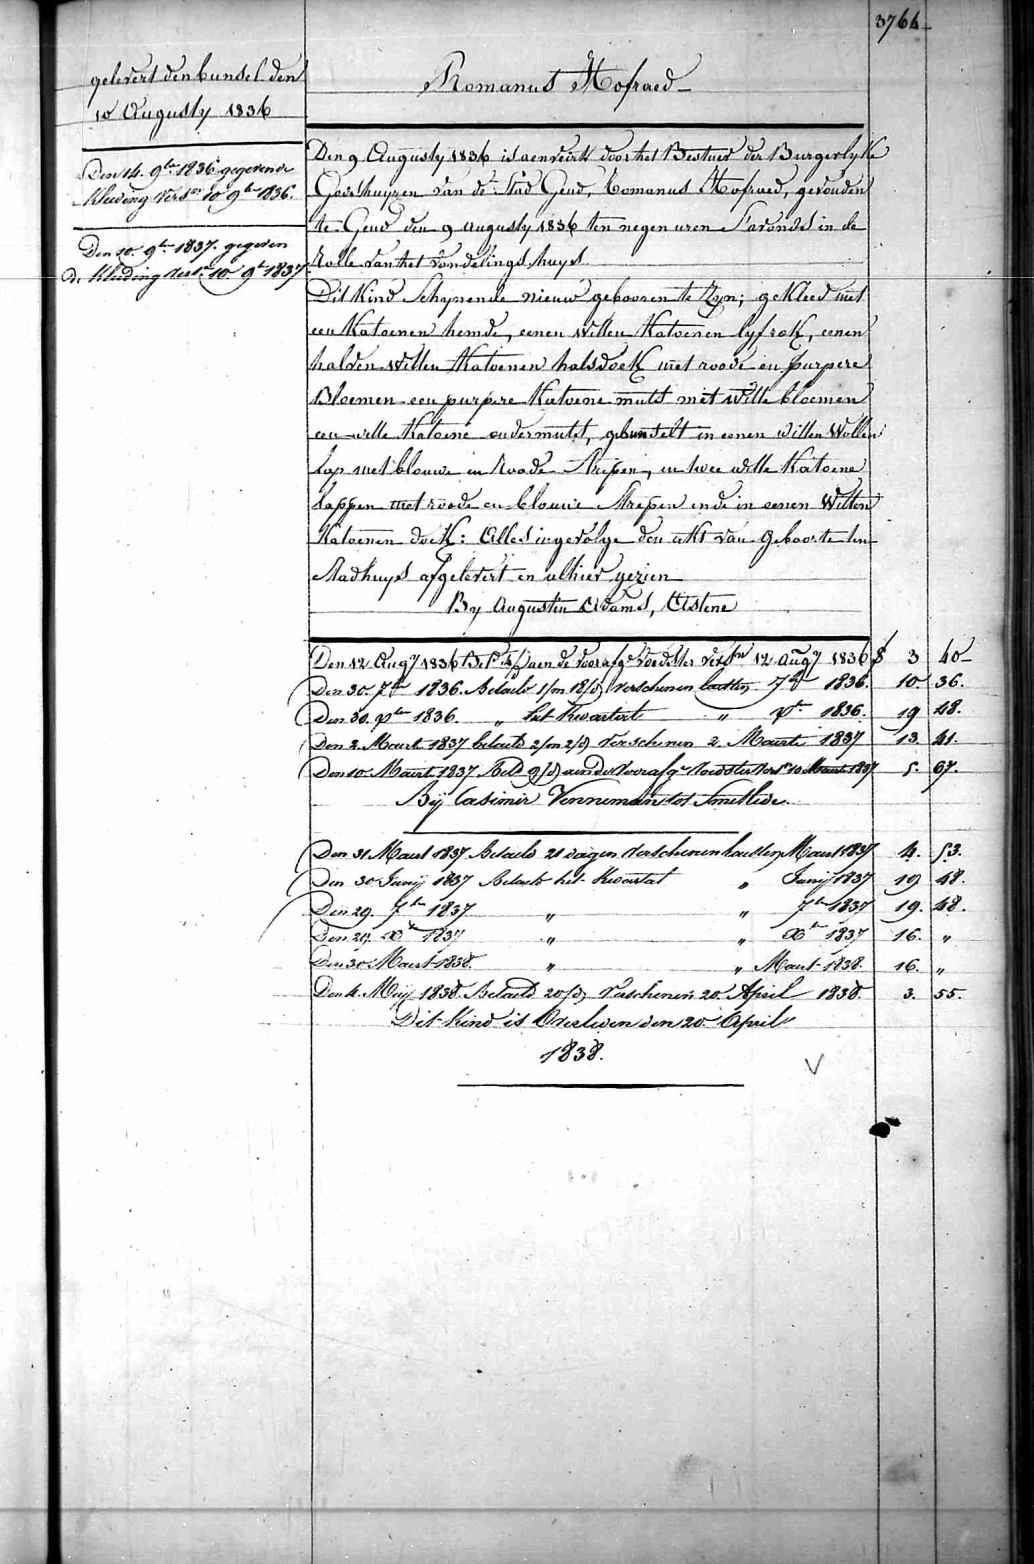 3764
gelevert den bunsel den
10 Augusty 1836
Den 14. 9br 1836 gegeven de
kleeding vers. 10 9br 1836.
Den 10. 9br 1837. gegeven
de kleeding vers. 10 9br 1837.
Romanus Hofraed
Den 9 Augusty 1836 is aenveirt door het Bestuer der Burgerlyke
Godshuyzen van de Stad Gend, Romanus Hofraed, gevonden
te Gend den 9 augusty 1836 ten negen uren S'avonds in de
Rolle van het vondelings huys
Dit Kind Schynende nieuw gebooren te Zyn; gekleed met
een Katoenen hemde, eenen witten Katoenen lyfrok, eenen
halven witten Katoenen halsdoek met roode en purpere
Bloemen een purpere Katoene muts met witte bloemen
een witte Katoene ondermuts, gebunselt in eenen witten Wollen
lap met blouwe en Roode Strepen, en twee witte Katoene
lappen met roode en blouwe Strepen ende in eenen Witten
Katoenen doek: Alles ingevolge den akt van geboorte ten
Stadhuys afgelevert en alhier gezien
By Augustin Adams, Astene
Den 12 Augy 1836 Bet. aen de voorafge voedster vers. 12 Augy 1836 $ 3 40
Den 30 7br 1836. Betaeld 1/m 18/d verschenen laetsten 7br 1836. 10. 36.
Den 30. Xbr 1836. „ het Kwartert „ Xbr 1836. 19 48.
Den 2. Maert 1837 betaeld 2/m 2/d verschenen 2. Maerte 1837 13. 41.
Den 10 Maert 1837 Betd 9/d aen de voorafge voedster vers. 10 Maert 1837 5. 67.
Bij Casimir Vennemans tot Smetlede
Den 31 Maert 1837 Betaeld 21 dagen verschenen laetsten Maert 1837 4. 53.
Den 30 Junij 1837 Betaeld het Kwartat „ Junij 1837 19 48.
Den 29. 7br 1837 „ „ 7br 1837 19. 48.
Den 29. Xbr 1837 „ „ Xbr 1837 16. „
Den 30 Maert 1838. „ „ Maert 1838. 16. „
Den 4. Meij 1838. Betaeld 20/d verschenen 20. April 1838. 3. 55.
Dit Kind is Overleden den 20. April
1838.